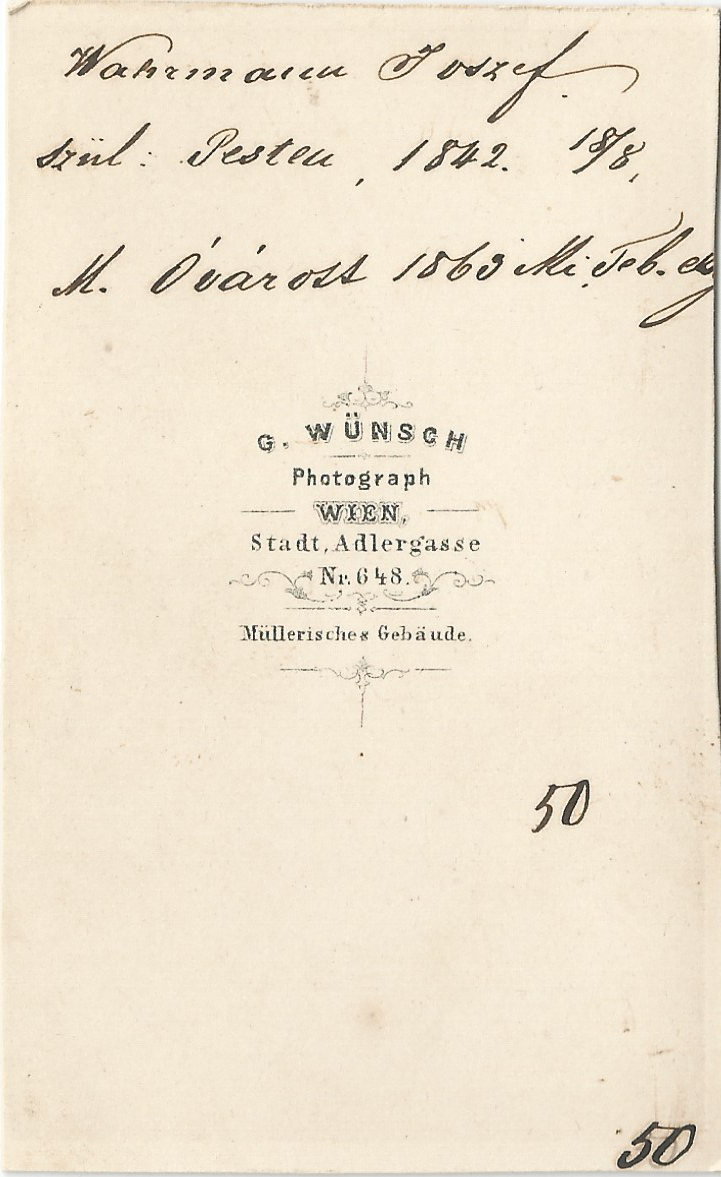 Wahrmann Joszef.
szül: Pesten, 1842. 18/8,
M. Óvárott 1863 Mi. Feb.
G. WÜNSCH
Photograph
WIEN,
Stadt, Adlergasse
Nr. 648.
Müllerisches Gebäude.
50
50